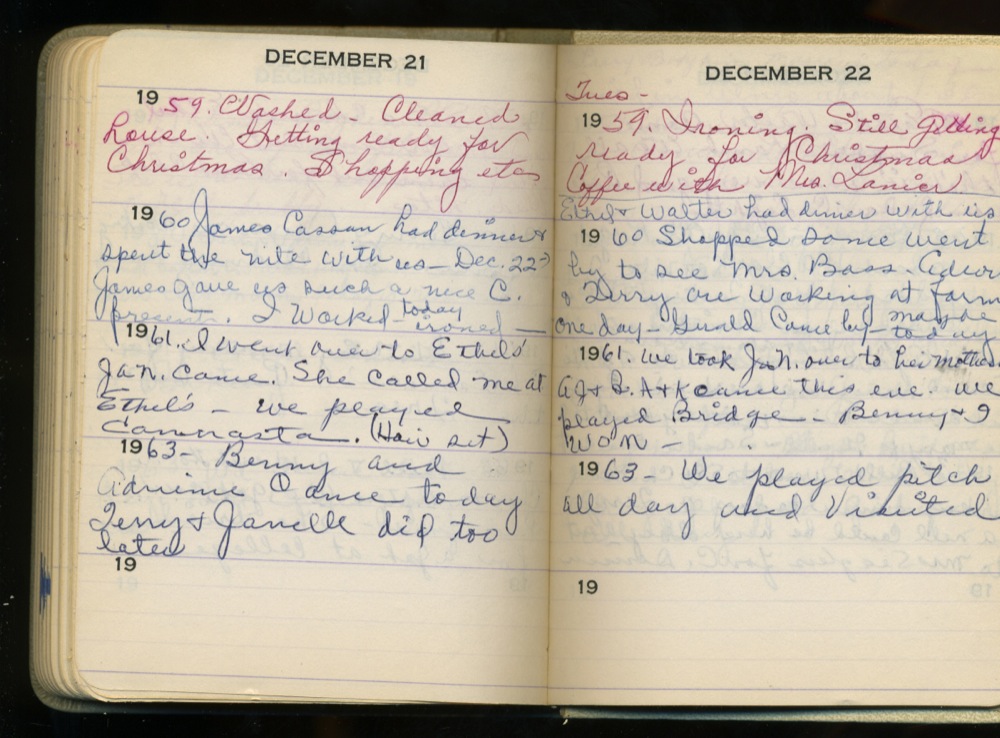 DECEMBER 21
1959. Washed - Cleaned
house. Getting ready for
Christmas. Shopping etc
1960 James Cassan had dinner &
spent the nite with us - Dec. 22
James gave us such a nice C.
present. I worked - today
ironed -
1961. I went over to Ethel's
JaN. came. She called me at
Ethel's - we played
Cannasta. (Hair set)
1963 - Benny and
Adriene came today
Terry & Janelle did too
later
19
DECEMBER 22
Tues -
1959. Ironing. Still getting
ready for Christmas
Coffee with Mrs. Lanier
Ethel & Walter had dinner with us
1960 Shopped some went
by to see Mrs. Bass.
& Terry are working at farm
one day - Gerald came by - maybe
today
1961. we took JaN. over to her mothers
AJ & B. A & K came this eve. we
played Bridge - Benny & I
WON -
1963 - We played pitch
all day and visited
19